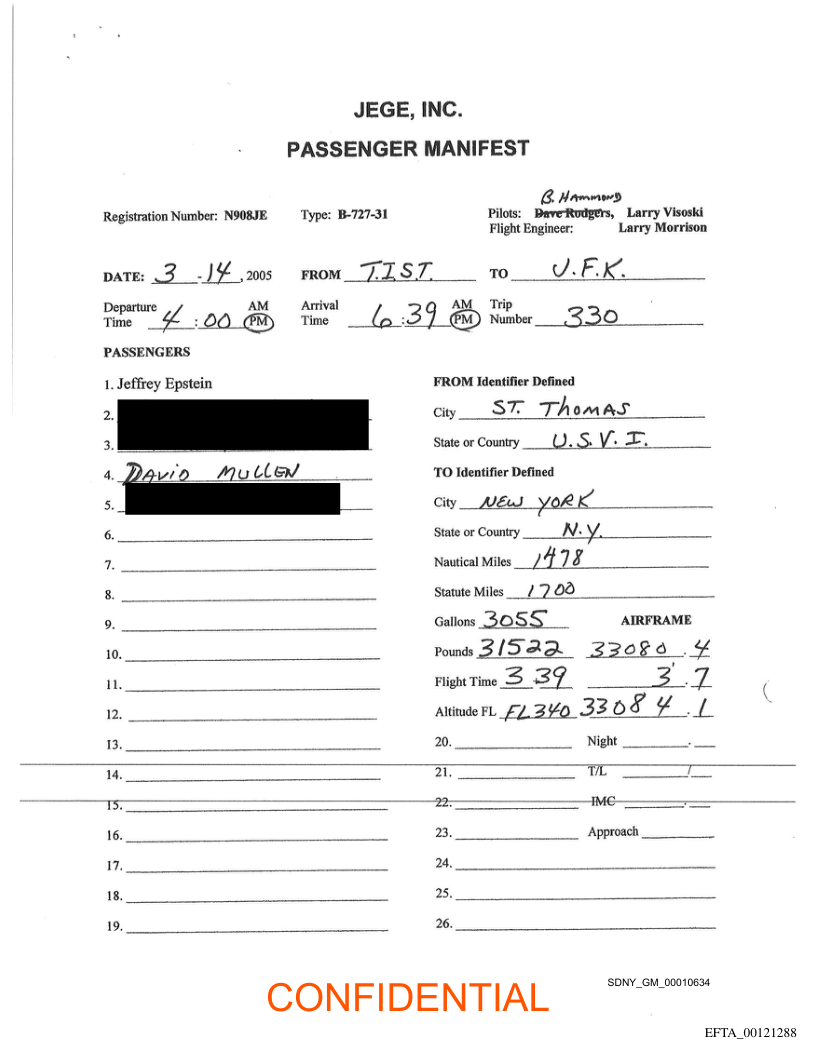 JEGE, INC.
PASSENGER MANIFEST
B. HAMMOND
Registration Number: N908JE Type: B-727-31 Pilots: Dave Rodgers, Larry Visoski
Flight Engineer: Larry Morrison
DATE: 3 - 14, 2005 FROM T.I.S.T. TO J.F.K.
Departure Time 4:00 AM PM Arrival Time 6:39 AM PM Trip Number 330
PASSENGERS
1. Jeffrey Epstein
2.
3.
4. DAVID MULLEN
5.
6.
7.
8.
9.
10.
11.
12.
13.
14.
15.
16.
17.
18.
19.
FROM Identifier Defined
City ST. THOMAS
State or Country U.S.V.I.
TO Identifier Defined
City NEW YORK
State or Country N.Y.
Nautical Miles 1478
Statute Miles 1700
Gallons 3055 AIRFRAME
Pounds 31522 33080.4
Flight Time 3 39 3.7
Altitude FL FL340 33084.1
20. Night
21. T/L /
22. IMC
23. Approach
24.
25.
26.
SDNY_GM_00010634
CONFIDENTIAL
EFTA_00121288